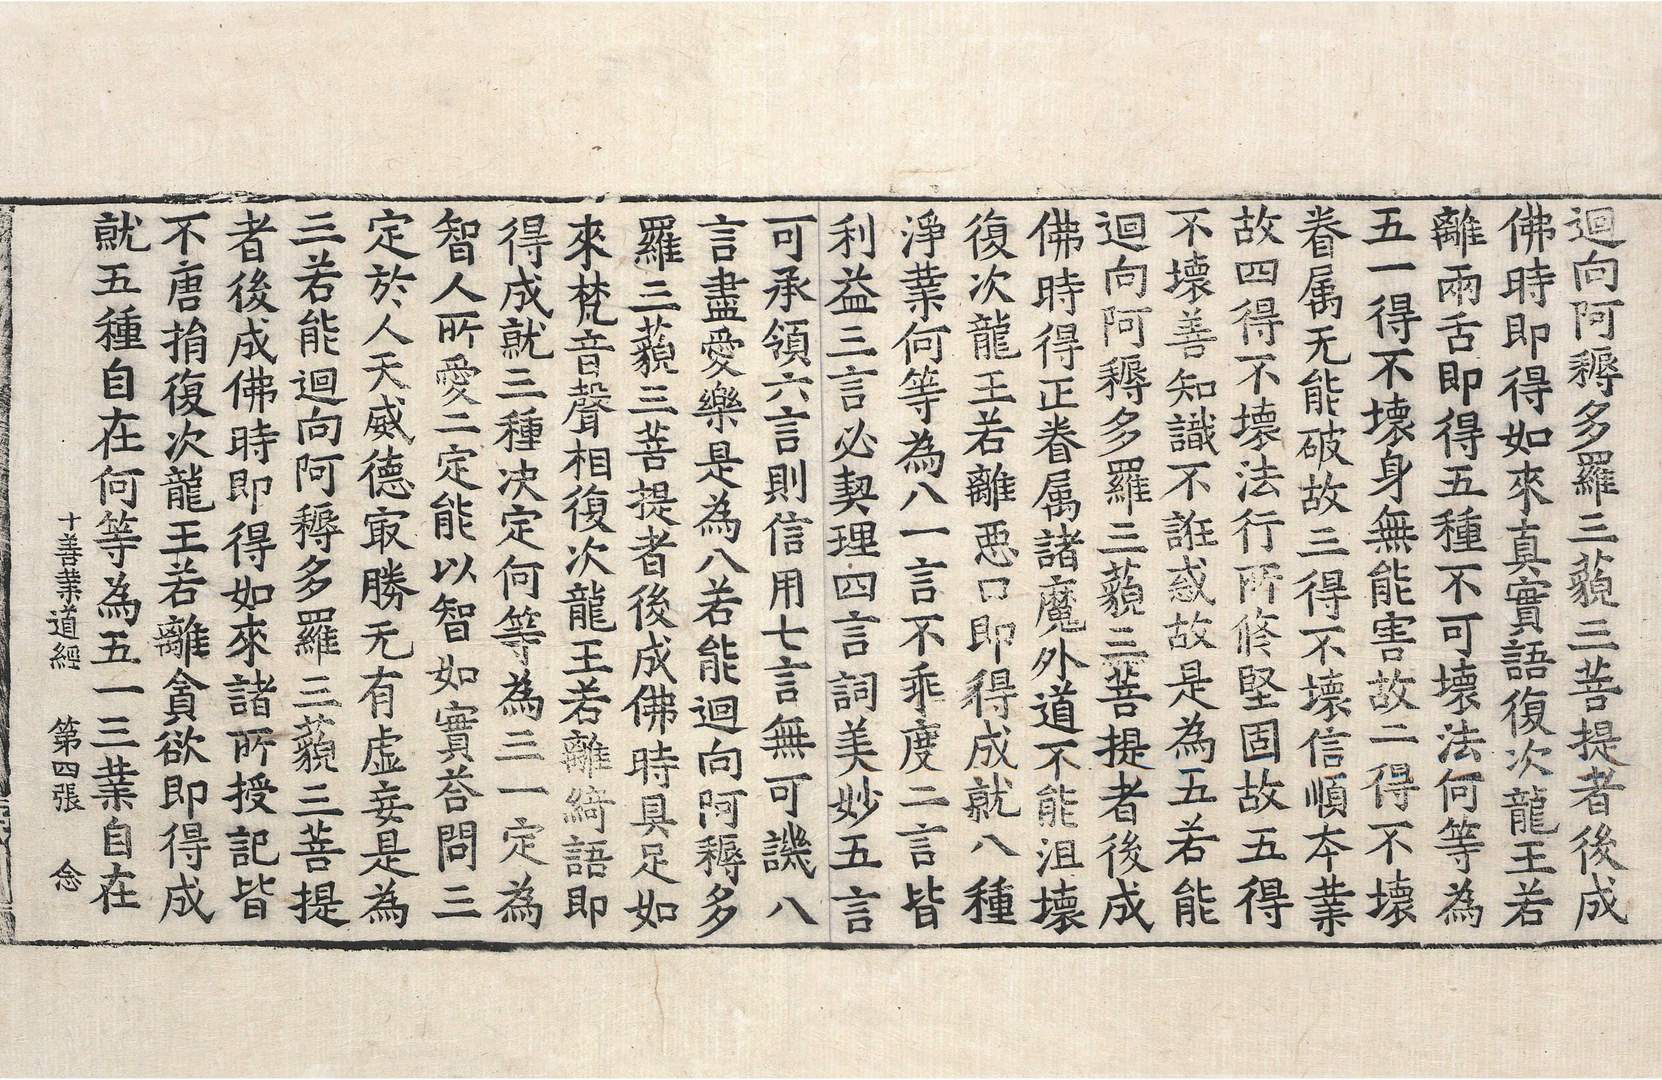 迴向阿耨多羅三藐三菩提者後成
佛時即得如來真實語復次龍王若
離兩舌即得五種不可壞法何等為
五一得不壞身無能害故二得不壞
眷属无能破故三得不壞信順夲業
故四得不壞法行所修堅固故五得
不壞善知識不誑惑故是為五若能
迴向阿耨多羅三藐三菩提者後成
佛時得正眷属諸魔外道不能沮壞
復次龍王若離惡口即得成就八種
淨業何等為八一言不乖度二言皆
利益三言必契理四言詞美妙五言
可承領六言則信用七言無可譏八
言盡愛樂是為八若能迴向阿耨多
羅三藐三菩提者後成佛時具足如
來梵音聲相復次龍王若離綺語即
得成就三種决定何等為三一定為
智人所愛二定能以智如實荅問三
定於人天威德㝡勝无有虛妄是為
三若能迴向阿耨多羅三藐三菩提
者後成佛時即得如來諸所授記皆
不唐捐復次龍王若離貪欲即得成
就五種自在何等為五一三業自在
十善業道經　第四張　念